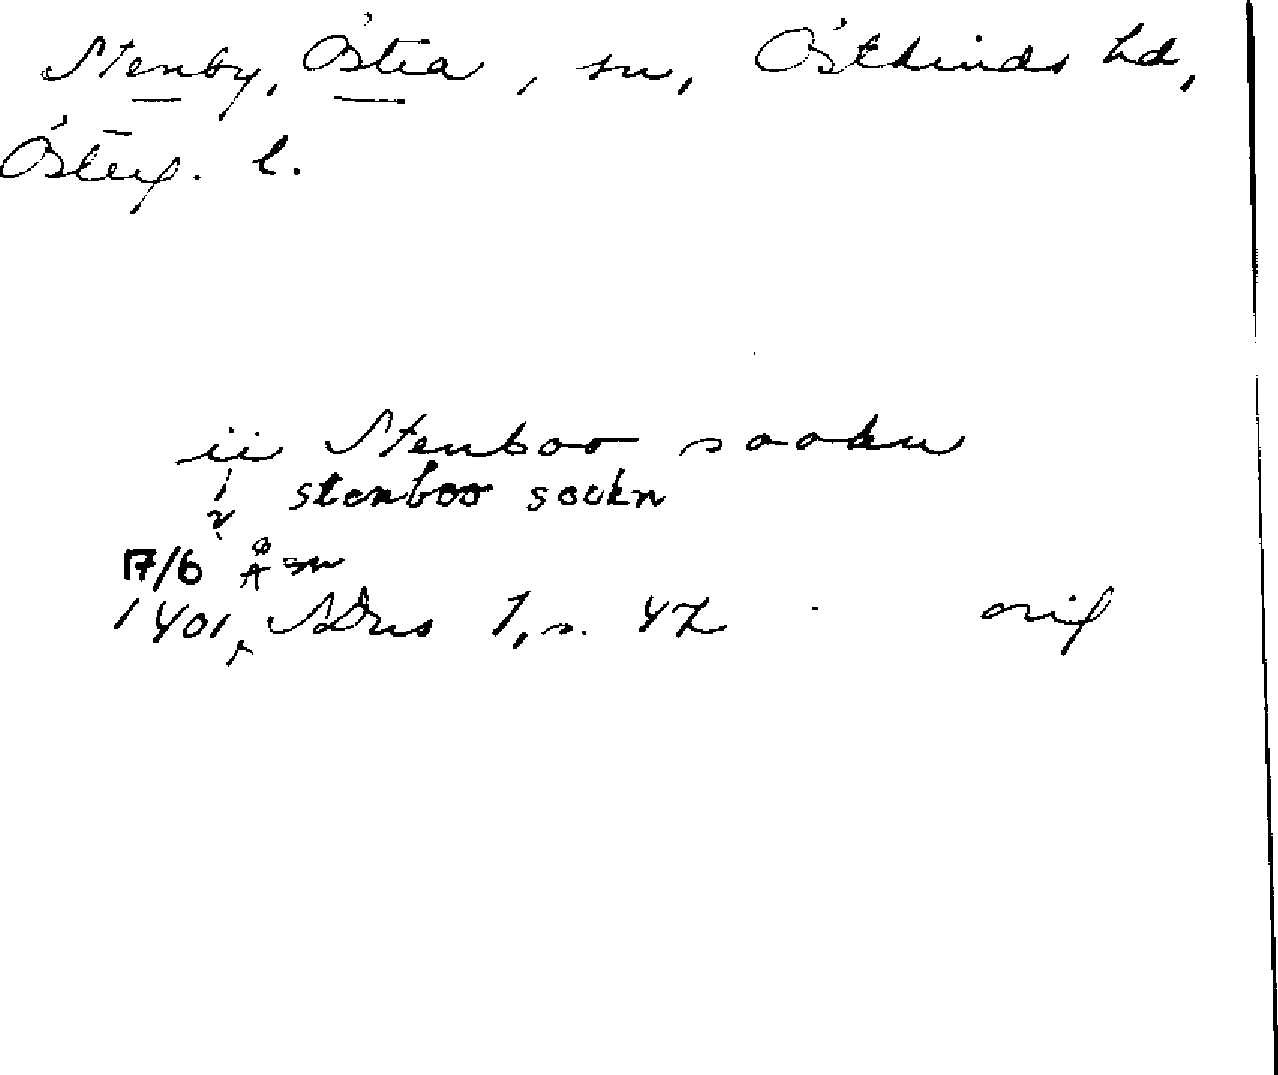 Stenby, Östra, sn, Östkinds hd,
Österg. l.
ii Stenboo sookn
i stenboo sockn
17/6 Å sn
1401, SDns 1, s. 42 orig